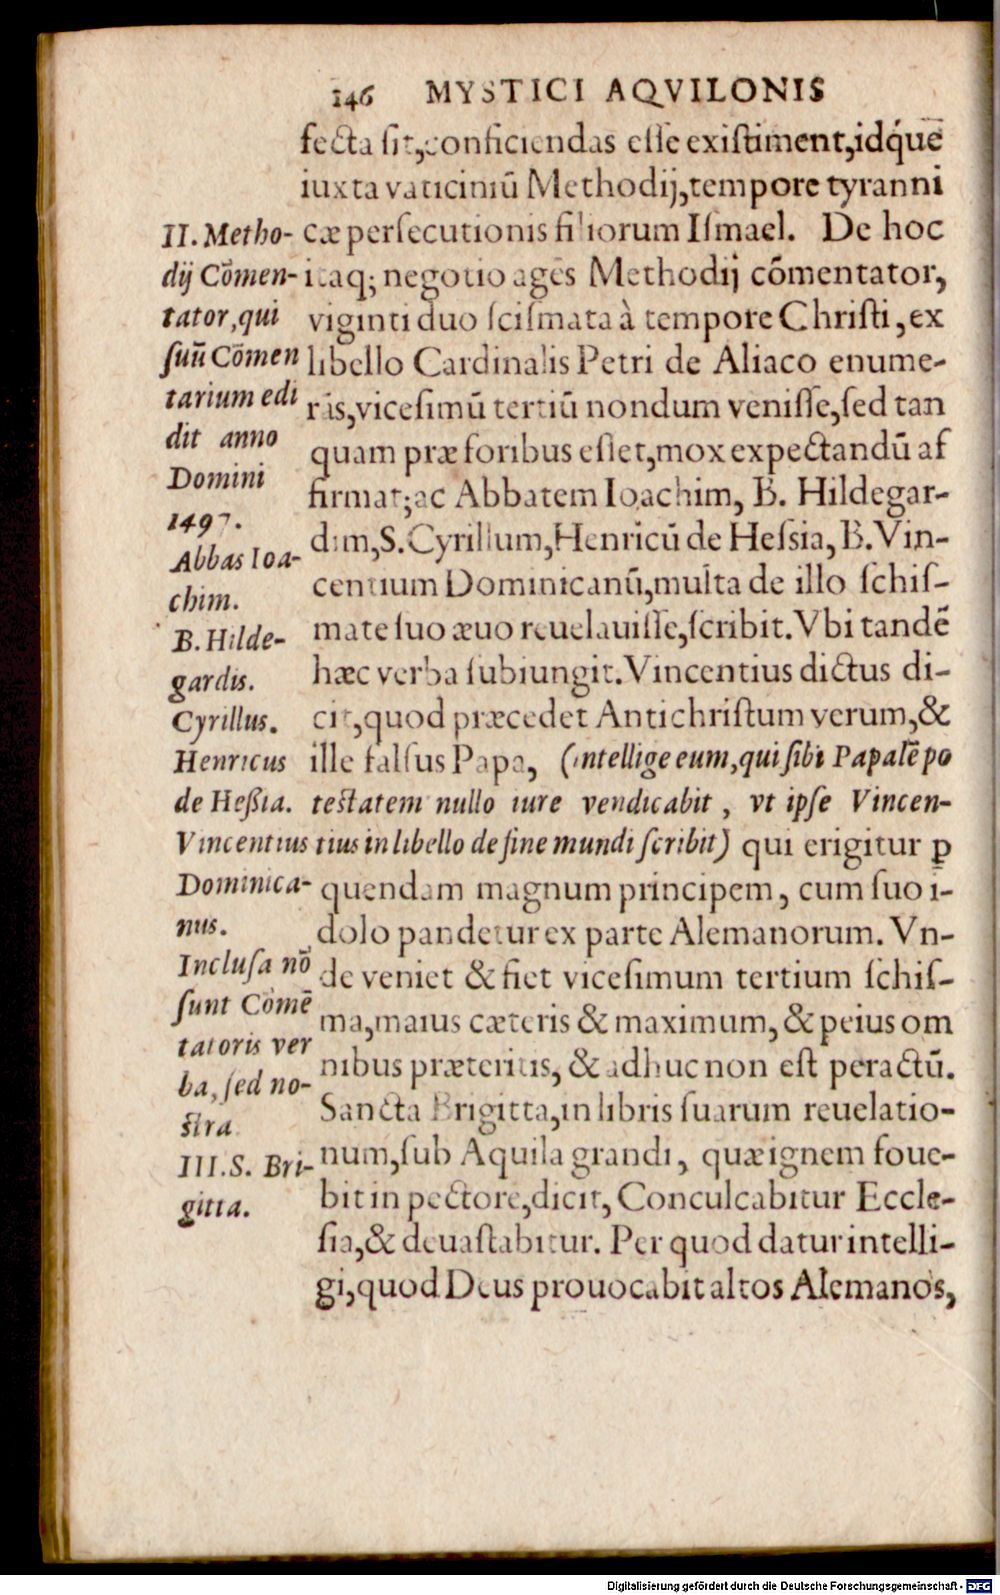 146 MYSTICI AQVILONIS
fecta ſit, conficiendas eſſe exiſtiment, idq́ue
iuxta vaticiniū Methodij, tempore tyranni
cæ perſecutionis filiorum Iſmael. De hoc
itaq; negotio agēs Methodij cōmentator,
viginti duo ſciſmata à tempore Chriſti, ex
libello Cardinalis Petri de Aliaco enume-
rās, viceſimū tertiū nondum veniſſe, ſed tan
quam præ foribus eſſet, mox expectandū af
firmat; ac Abbatem Ioachim, B. Hildegar-
dim, S. Cyrillum, Henricū de Heſsia, B. Vin-
centium Dominicanū, multa de illo ſchiſ-
mate ſuo æuo reuelauiſſe, ſcribit. Vbi tandē
hæc verba ſubiungit. Vincentius dictus di-
cit, quod præcedet Antichriſtum verum, &
ille falſus Papa, (intellige eum, qui ſibi Papalē po
teſtatem nullo iure vendicabit, vt ipſe Vincen-
tius in libello de fine mundi ſcribit) qui erigitur ꝑ
quendam magnum principem, cum ſuo i-
dolo pandetur ex parte Alemanorum. Vn-
de veniet & fiet viceſimum tertium ſchiſ-
ma, maius cæteris & maximum, & peius om
nibus præteritis, & adhuc non eſt peractū.
Sancta Brigitta, in libris ſuarum reuelatio-
num, ſub Aquila grandi, quæ ignem foue-
bit in pectore, dicit, Conculcabitur Eccle-
ſia, & deuaſtabitur. Per quod datur intelli-
gi, quod Deus prouocabit altos Alemanos,
II. Metho-
dij Cōmen-
tator, qui
ſuū Cōmen
tarium edi
dit anno
Domini
1497.
Abbas Ioa-
chim.
B. Hilde-
gardis.
Cyrillus.
Henricus
de Heßia.
Vincentius
Dominica-
nus.
Incluſa nō
ſunt Cōmē
tatoris ver
ba, ſed no-
ſtra
III. S. Bri-
gitta.
Digitalisierung gefördert durch die Deutsche Forschungsgemeinschaft - DFG